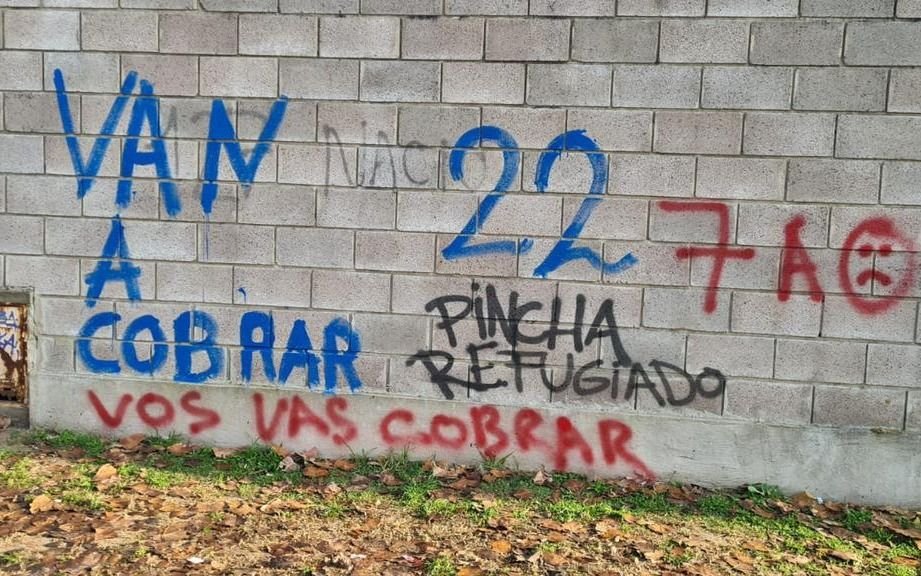 VAN
A
COBRAR
22
7 A
PINCHA
REFUGIADO
VOS VAS COBRAR